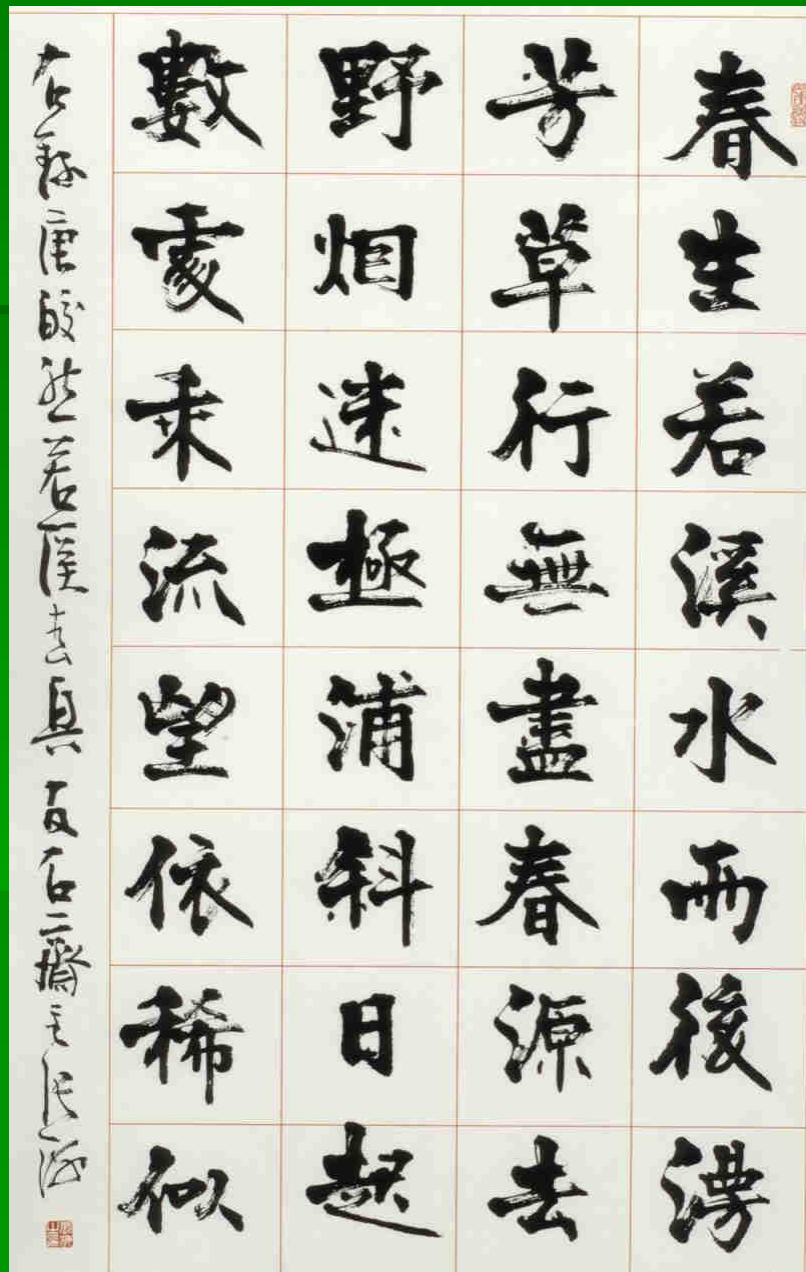 春生若溪水雨後漫
芳草行無盡春源去
野烟迷極浦斜日起
數處乘流望依稀似
右録唐皎然若溪春興